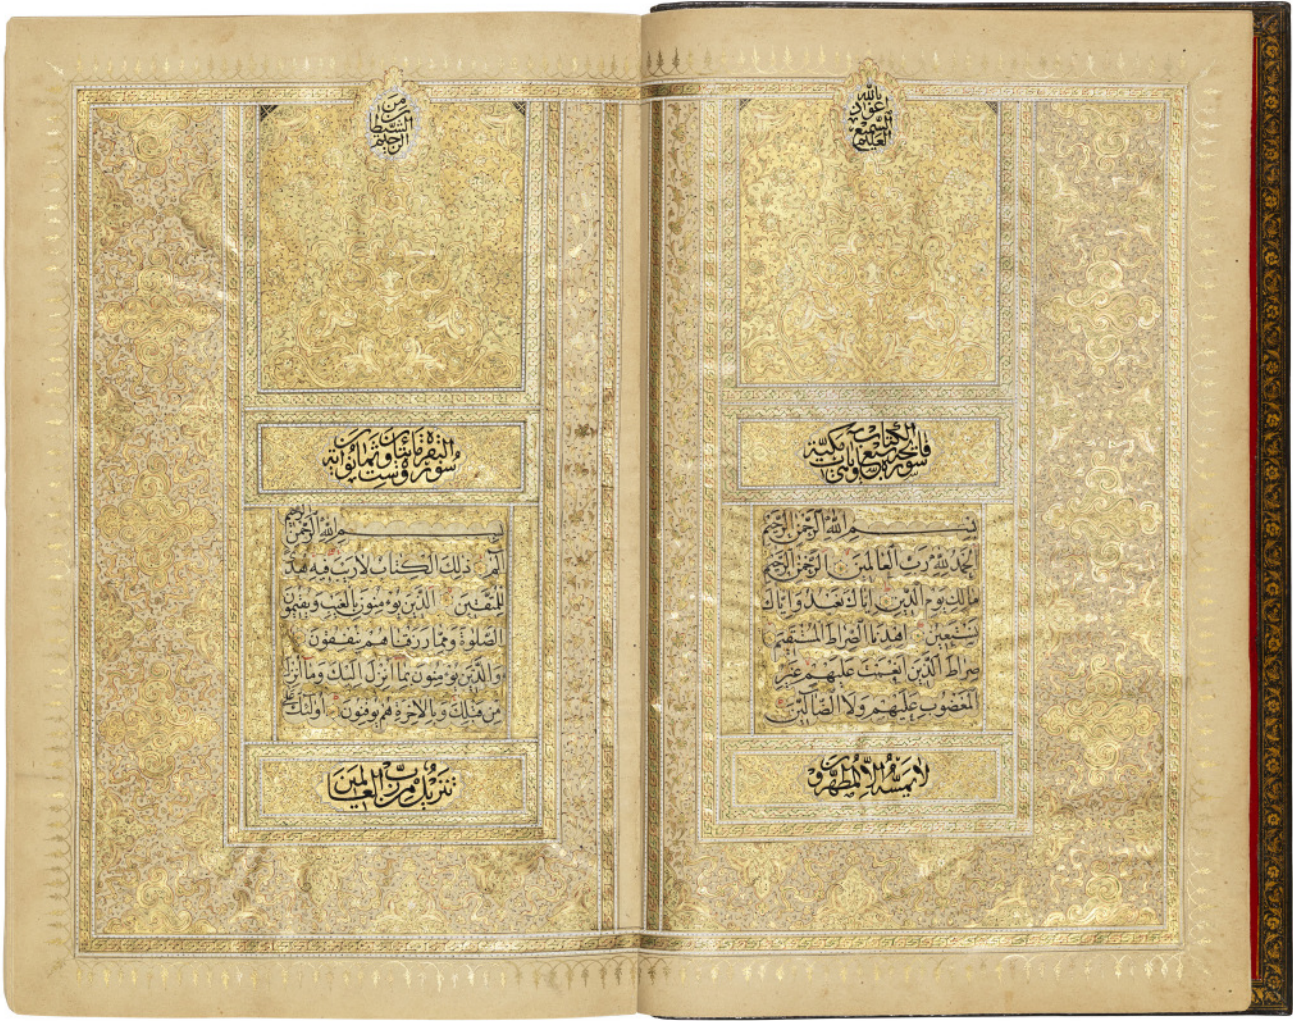 أعوذ بالله
السميع
العليم
سورة فاتحة الكتاب سبع آيات مكية
بسم الله الرحمن الرحيم
الحمد لله رب العالمين الرحمن الرحيم
مالك يوم الدين إياك نعبد وإياك
نستعين اهدنا الصراط المستقيم
صراط الذين أنعمت عليهم غير
المغضوب عليهم ولا الضالين
لا يمسه إلا المطهرون
من
الشيطان
الرجيم
سورة البقرة مائتان وثمانون وست آية
بسم الله الرحمن الرحيم
الم ذلك الكتاب لا ريب فيه هدى
للمتقين الذين يؤمنون بالغيب ويقيمون
الصلوة ومما رزقناهم ينفقون
والذين يؤمنون بما أنزل إليك وما أنزل
من قبلك وبالآخرة هم يوقنون أولئك على
تنزيل من رب العالمين